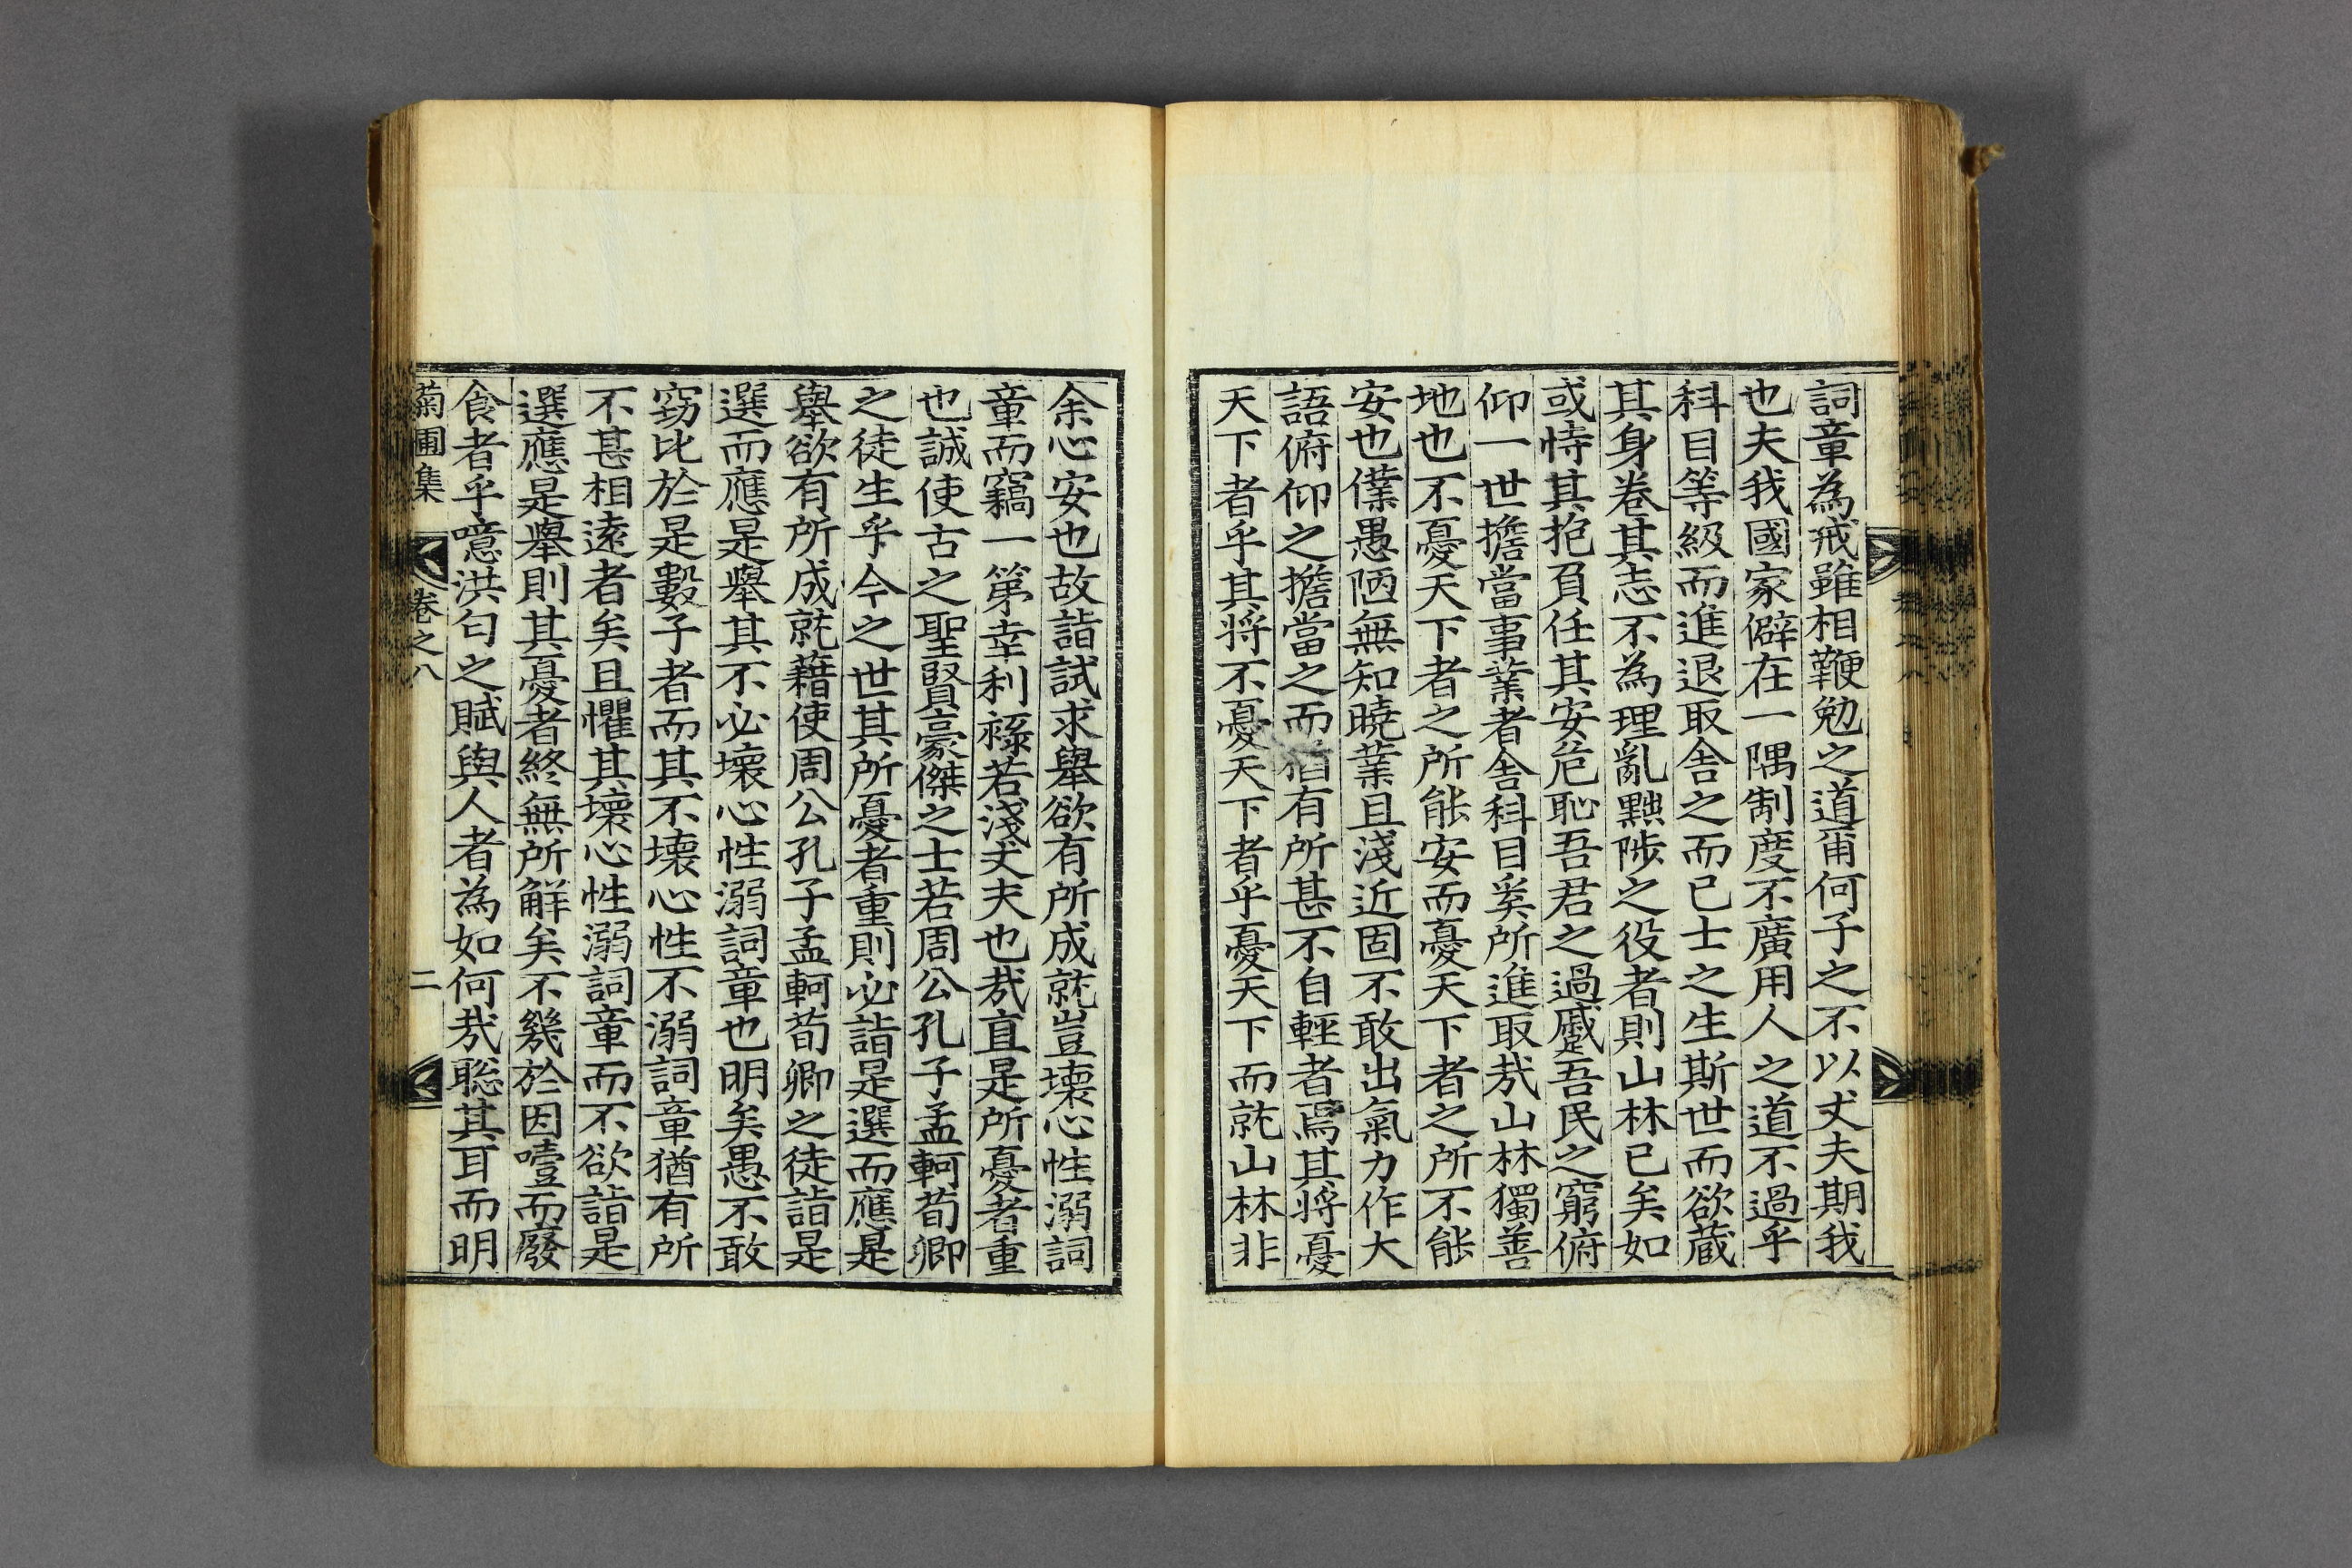 詞章為戒雖相鞭勉之道甭何子之不以丈夫期我
也夫我國家僻在一隅制度不廣用人之道不過乎
科目等級而進退取舍之而已士之生斯世而欲蔵
其身卷其志不為理亂黜陟之役者則山林已矣如
或恃其抱負任其安危恥吾君之過慼吾民之窮俯
仰一世擔當事業者舍科目奚所進取㢤山林獨善
地也不憂天下者之所能安而憂天下者之所不能
安也僕愚陋無知曉業且淺近固不敢出氣力作大
語俯仰之擔當之而猶有所甚不自輕者焉其將憂
天下者乎其將不憂天下者乎憂天下而就山林非
余心安也故詣試求舉欲有所成就豈壞心性溺詞
章而竊一第幸利祿若淺丈夫也㢤直是所憂者重
也誠使古之聖賢豪傑之士若周公孔子孟軻荀卿
之徒生乎今之世其所憂者重則必詣是選而應是
舉欲有所成就藉使周公孔子孟軻荀卿之徒詣是
選而應是舉其不必壞心性溺詞章也明矣愚不敢
竊比於是數子者而其不壞心性不溺詞章猶有所
不甚相遠者矣且懼其壞心性溺詞章而不欲詣是
選應是舉則其憂者終無所解矣不幾於因噎而廢
食者乎噫洪匀之賦與人者為如何㢤聡其耳而明
菊圃集 卷之八 二